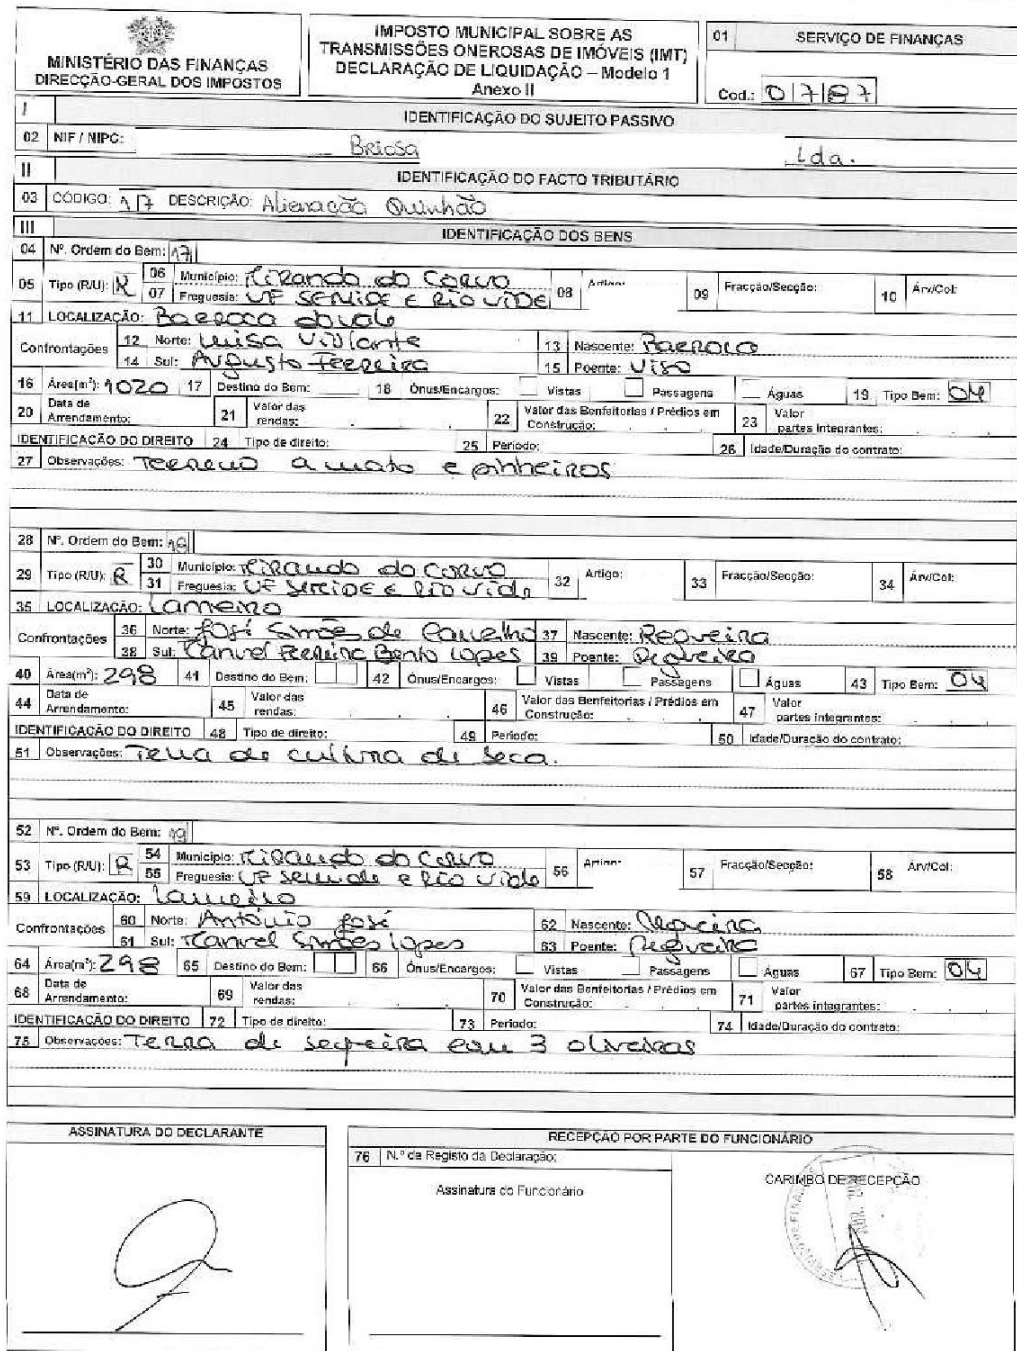 MINISTÉRIO DAS FINANÇAS
DIRECÇÃO-GERAL DOS IMPOSTOS
IMPOSTO MUNICIPAL SOBRE AS
TRANSMISSÕES ONEROSAS DE IMÓVEIS (IMT)
DECLARAÇÃO DE LIQUIDAÇÃO – Modelo 1
Anexo II
01 SERVIÇO DE FINANÇAS
Cod.: 0787
I IDENTIFICAÇÃO DO SUJEITO PASSIVO
02 NIF / NIPC: Briosa Lda.
II IDENTIFICAÇÃO DO FACTO TRIBUTÁRIO
03 CÓDIGO: 17 DESCRIÇÃO: Alienação Quinhão
III IDENTIFICAÇÃO DOS BENS
04 Nº. Ordem do Bem: 17
05 Tipo (R/U): R 06 Município: Miranda do Corvo
07 Freguesia: UF SEMIDE E RIO VIDE 08 09 Fracção/Secção: 10 Árv/Col:
11 LOCALIZAÇÃO: Barroca
Confrontações 12 Norte: Luisa Violante 13 Nascente: Barroca
14 Sul: Augusto Ferreira 15 Poente: Viso
16 Área(m²): 1020 17 Destino do Bem: 18 Ónus/Encargos: Vistas Passagens Águas 19 Tipo Bem: 04
20 Data de Arrendamento: 21 Valor das rendas: 22 Valor das Benfeitorias / Prédios em Construção: 23 Valor partes integrantes:
IDENTIFICAÇÃO DO DIREITO 24 Tipo de direito: 25 Período: 26 Idade/Duração do contrato:
27 Observações: Terreno a mato e pinheiros
28 Nº. Ordem do Bem:
29 Tipo (R/U): R 30 Município: Miranda do Corvo
31 Freguesia: UF SEMIDE E Rio Vide 32 Artigo: 33 Fracção/Secção: 34 Árv/Col:
35 LOCALIZAÇÃO: Lameiro
Confrontações 36 Norte: José Simões de Carvalho 37 Nascente: Regueira
38 Sul: Manuel Ferreira Bento Lopes 39 Poente: Regueira
40 Área(m²): 298 41 Destino do Bem: 42 Ónus/Encargos: Vistas Passagens Águas 43 Tipo Bem: 04
44 Data de Arrendamento: 45 Valor das rendas: 46 Valor das Benfeitorias / Prédios em Construção: 47 Valor partes integrantes:
IDENTIFICAÇÃO DO DIREITO 48 Tipo de direito: 49 Período: 50 Idade/Duração do contrato:
51 Observações: Terra de cultura de seca.
52 Nº. Ordem do Bem: 19
53 Tipo (R/U): R 54 Município: Miranda do Corvo
55 Freguesia: UF Semide e Rio Vide 56 57 Fracção/Secção: 58 Árv/Col:
59 LOCALIZAÇÃO: Lameiro
Confrontações 60 Norte: António José 62 Nascente: Regueira
61 Sul: Manuel Simões Lopes 63 Poente: Regueira
64 Área(m²): 298 65 Destino do Bem: 66 Ónus/Encargos: Vistas Passagens Águas 67 Tipo Bem: 04
68 Data de Arrendamento: 69 Valor das rendas: 70 Valor das Benfeitorias / Prédios em Construção: 71 Valor partes integrantes:
IDENTIFICAÇÃO DO DIREITO 72 Tipo de direito: 73 Período: 74 Idade/Duração do contrato:
75 Observações: Terra de sequeira com 3 oliveiras
ASSINATURA DO DECLARANTE
RECEPÇÃO POR PARTE DO FUNCIONÁRIO
76 N.º de Registo da Declaração:
Assinatura do Funcionário
CARIMBO DE RECEPÇÃO